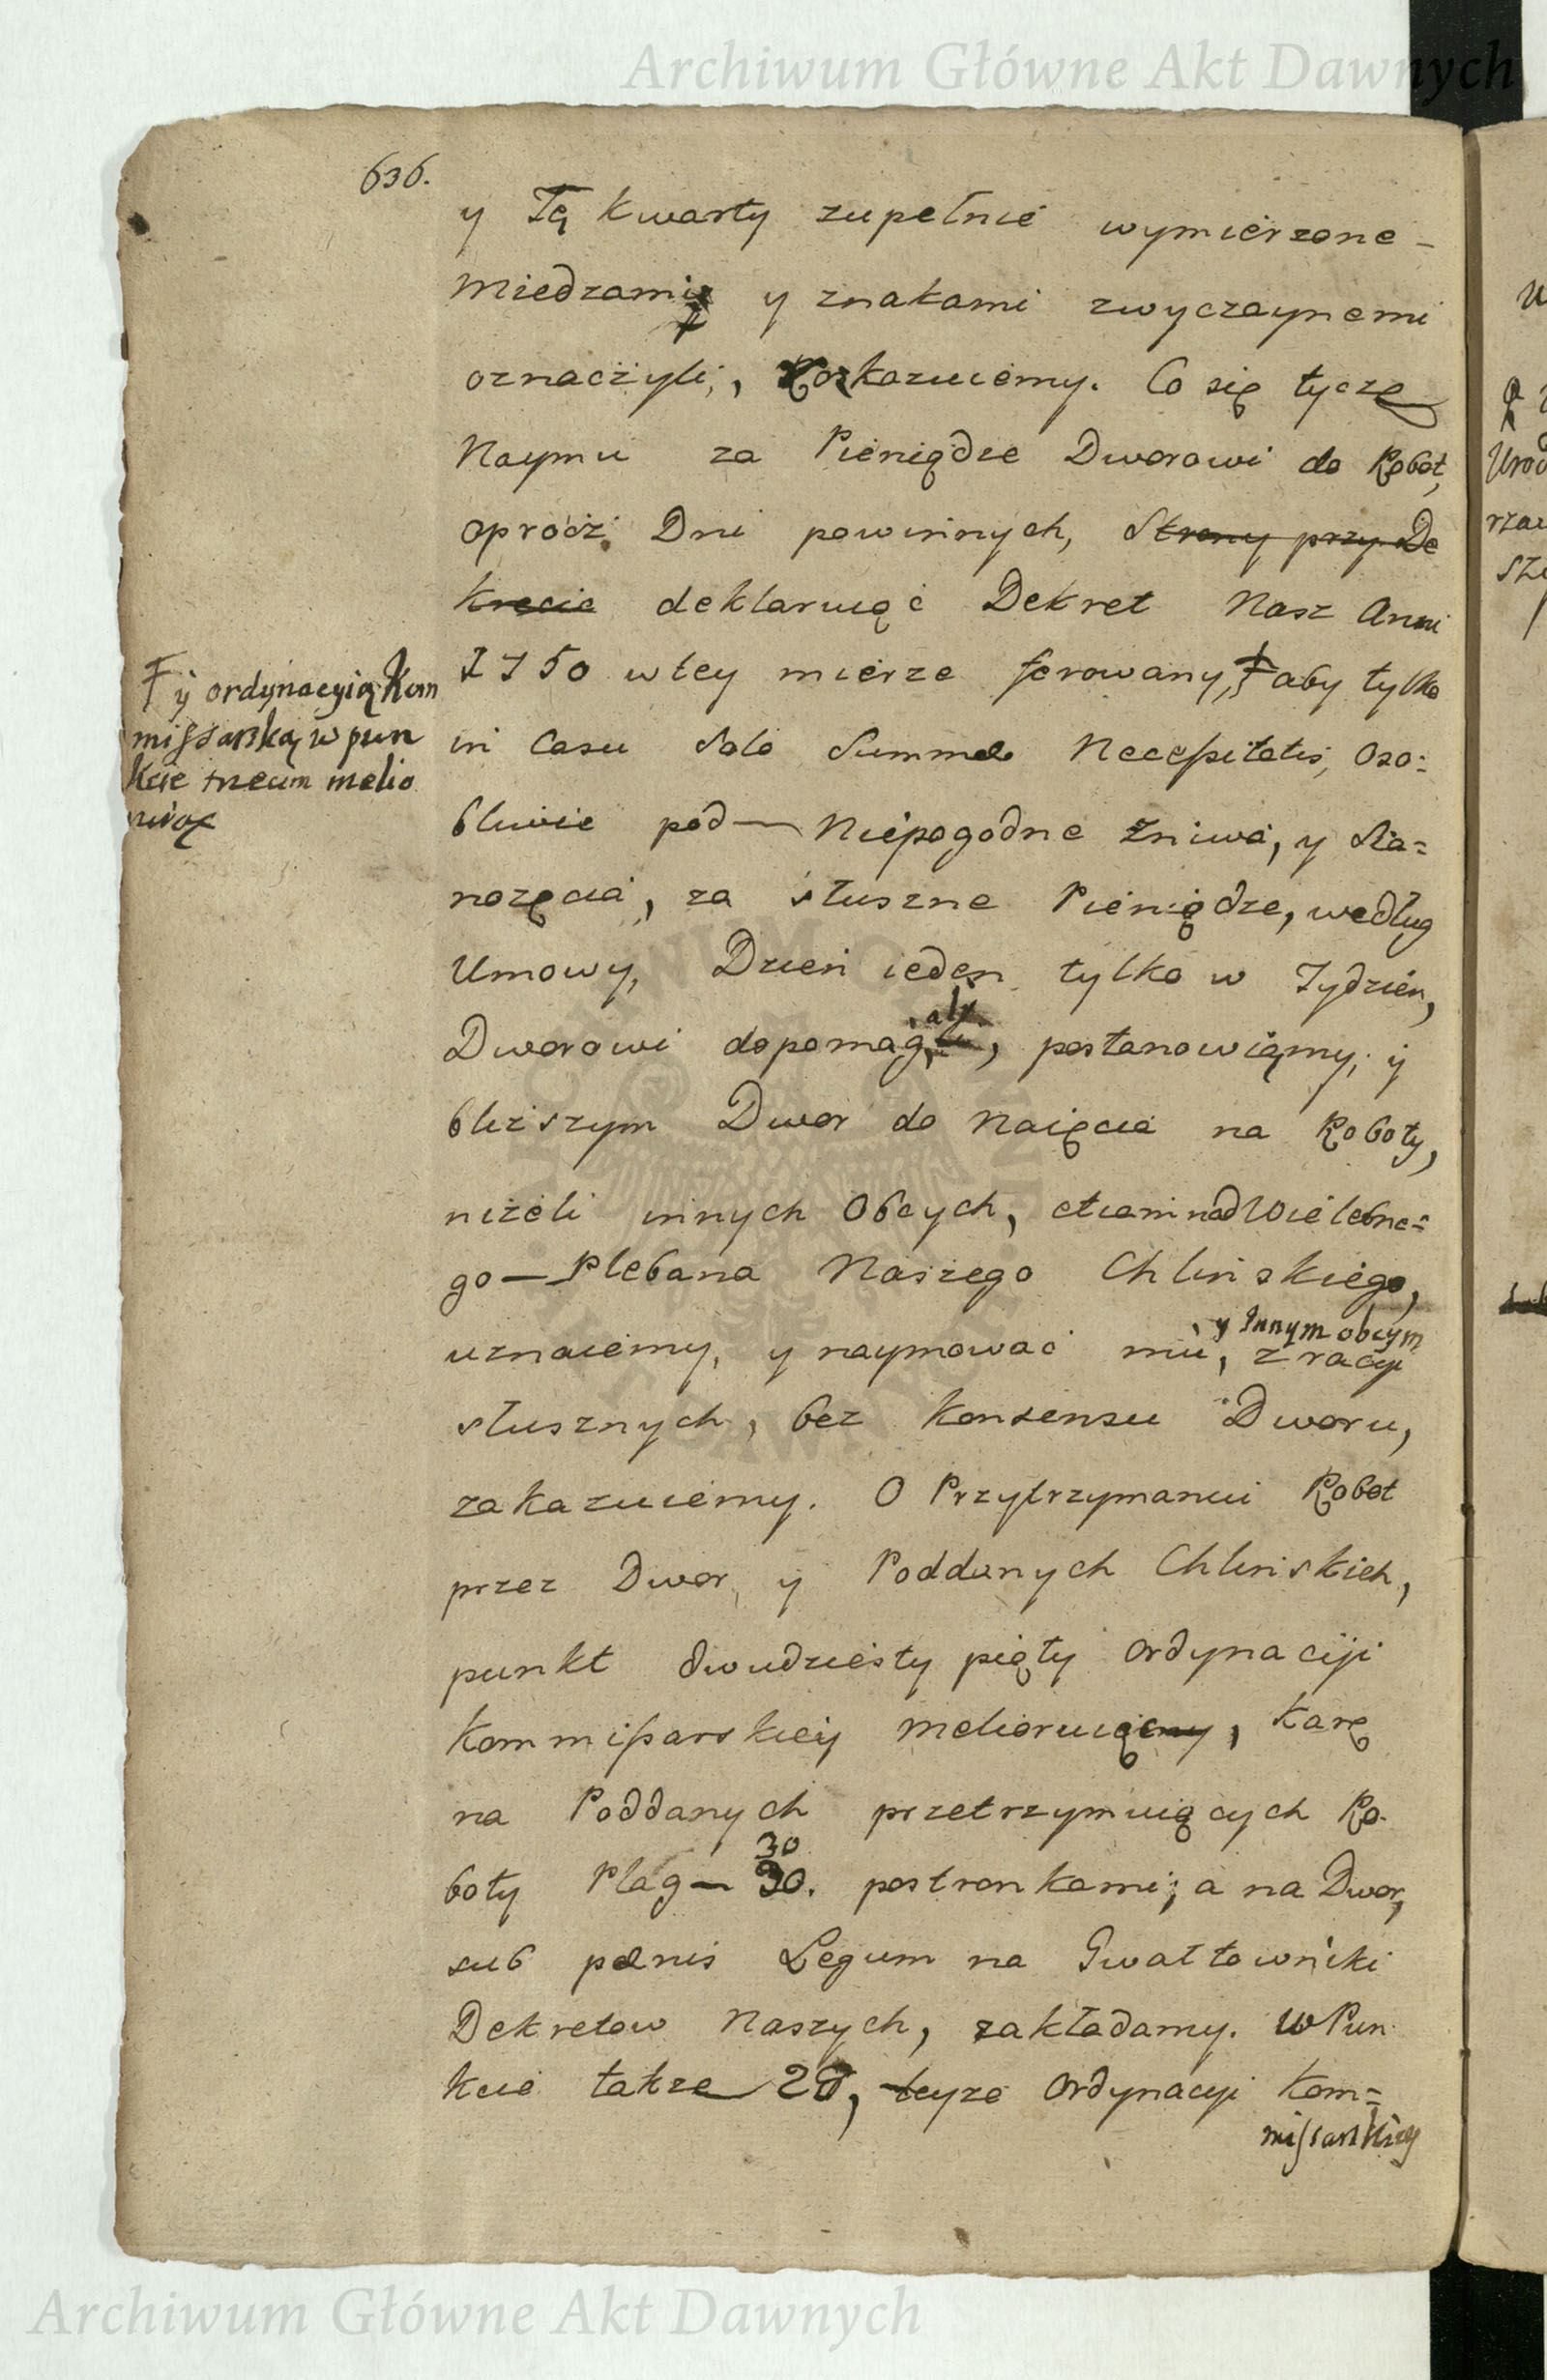 Archiwum Główne Akt Dawnych
636.
y Tą kwarty zupełnie wymierzone -
miedzami y znakami zwyczaynemi
oznaczyli, Rozkazuiemy. Co się tycze
Naymu za Pieniądze Dworowi do Robot,
oprocz Dni powinnych, Strony przy De
krecie deklaruiąc Dekret Nasz Anni
1750 w tey mierze ferowany, ŧ aby tylko
in Casu Solo Summae Necessitatis, oso:
bliwie pod — Niepogodne Zniwa, y Sia=
nozęcia, za słuszne Pieniądze, według
Umowy, Dzien ieden tylko w Tydzien,
Dworowi dopomagały, postanowiamy, y
bliższym Dwor do Naięcia na Roboty,
niżeli innych Obcych, etiam nad Wielebne=
go — Plebana Naszego Chlinskiego,
y Innym obcym
uznaiemy, y naymować mu, z racyi
słusznych, bez Konsensu Dworu,
zakazuiemy. O Przytrzymaniu Robot
przez Dwor, y Poddanych Chlinskich,
punkt dwudziesty piąty Ordynaciji
Kommissarskiey melioruiąc, Karę
na Poddanych przetrzymuiących Ro
30
boty Plag — 30. postronkami; a na Dwor,
sub paenis Legum na Gwałtowniki
Dekretow Naszych, zakładamy. W Pun
kcie także 26, teyże Ordynacyi Kom=
missarskiey
ŧ y ordynacyią Kom
missarską w pun
kcie trzecim melio
ruiąc
Archiwum Główne Akt Dawnych